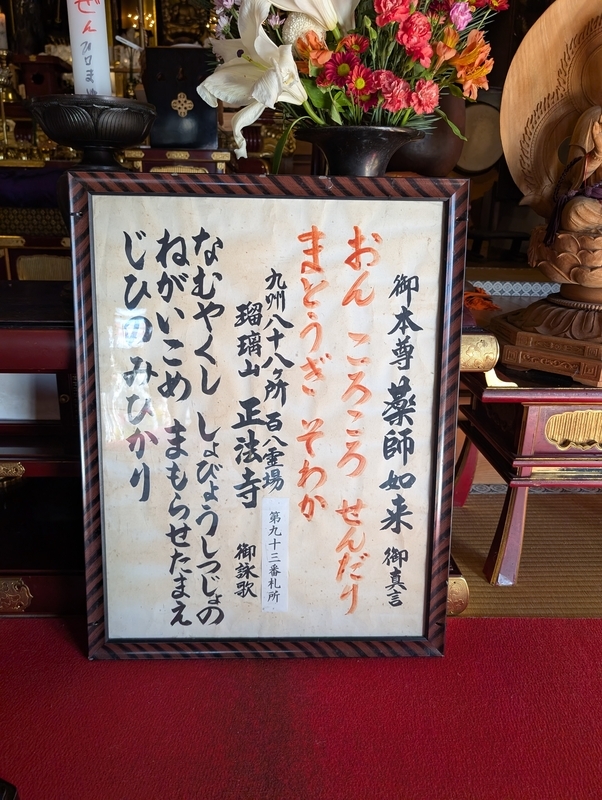 ぜんひまし
御本尊 薬師如来 御真言
おん ころころ せんだり
まとうぎ そわか
九州八十八ヶ所 百八霊場
第九十三番札所
瑠璃山 正法寺 御詠歌
なむやくし しょびょうしつじょの
ねがいこめ まもらせたまえ
じひのみひかり